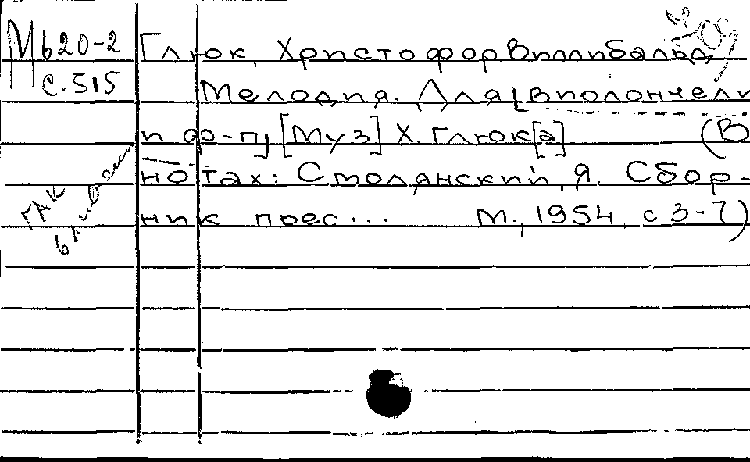 Мb20-2
с.515
Глюк, Христофор Виллибальд
Мелодия. Для [виолончели
и ф-п] [Муз] Х. Глюк[а] (В
нотах: Столянский, Я. Сбор-
ник пьес... М., 1954, с 3-7)